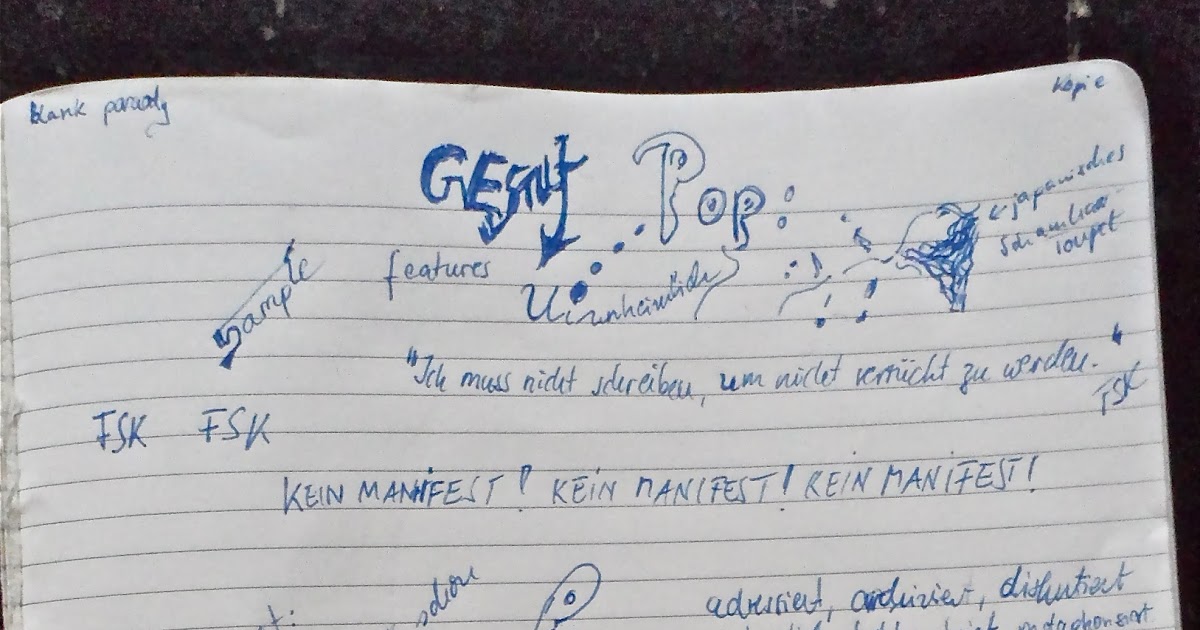 blank parody
Kopie
Pop:
japanisches
Schamhaar
toupet
features
sample
unheimlich
"Ich muss nicht schreiben, um nicht verrückt zu werden."
FSK
FSK FSK
KEIN MANIFEST! KEIN MANIFEST! KEIN MANIFEST!
adressiert, diskutiert